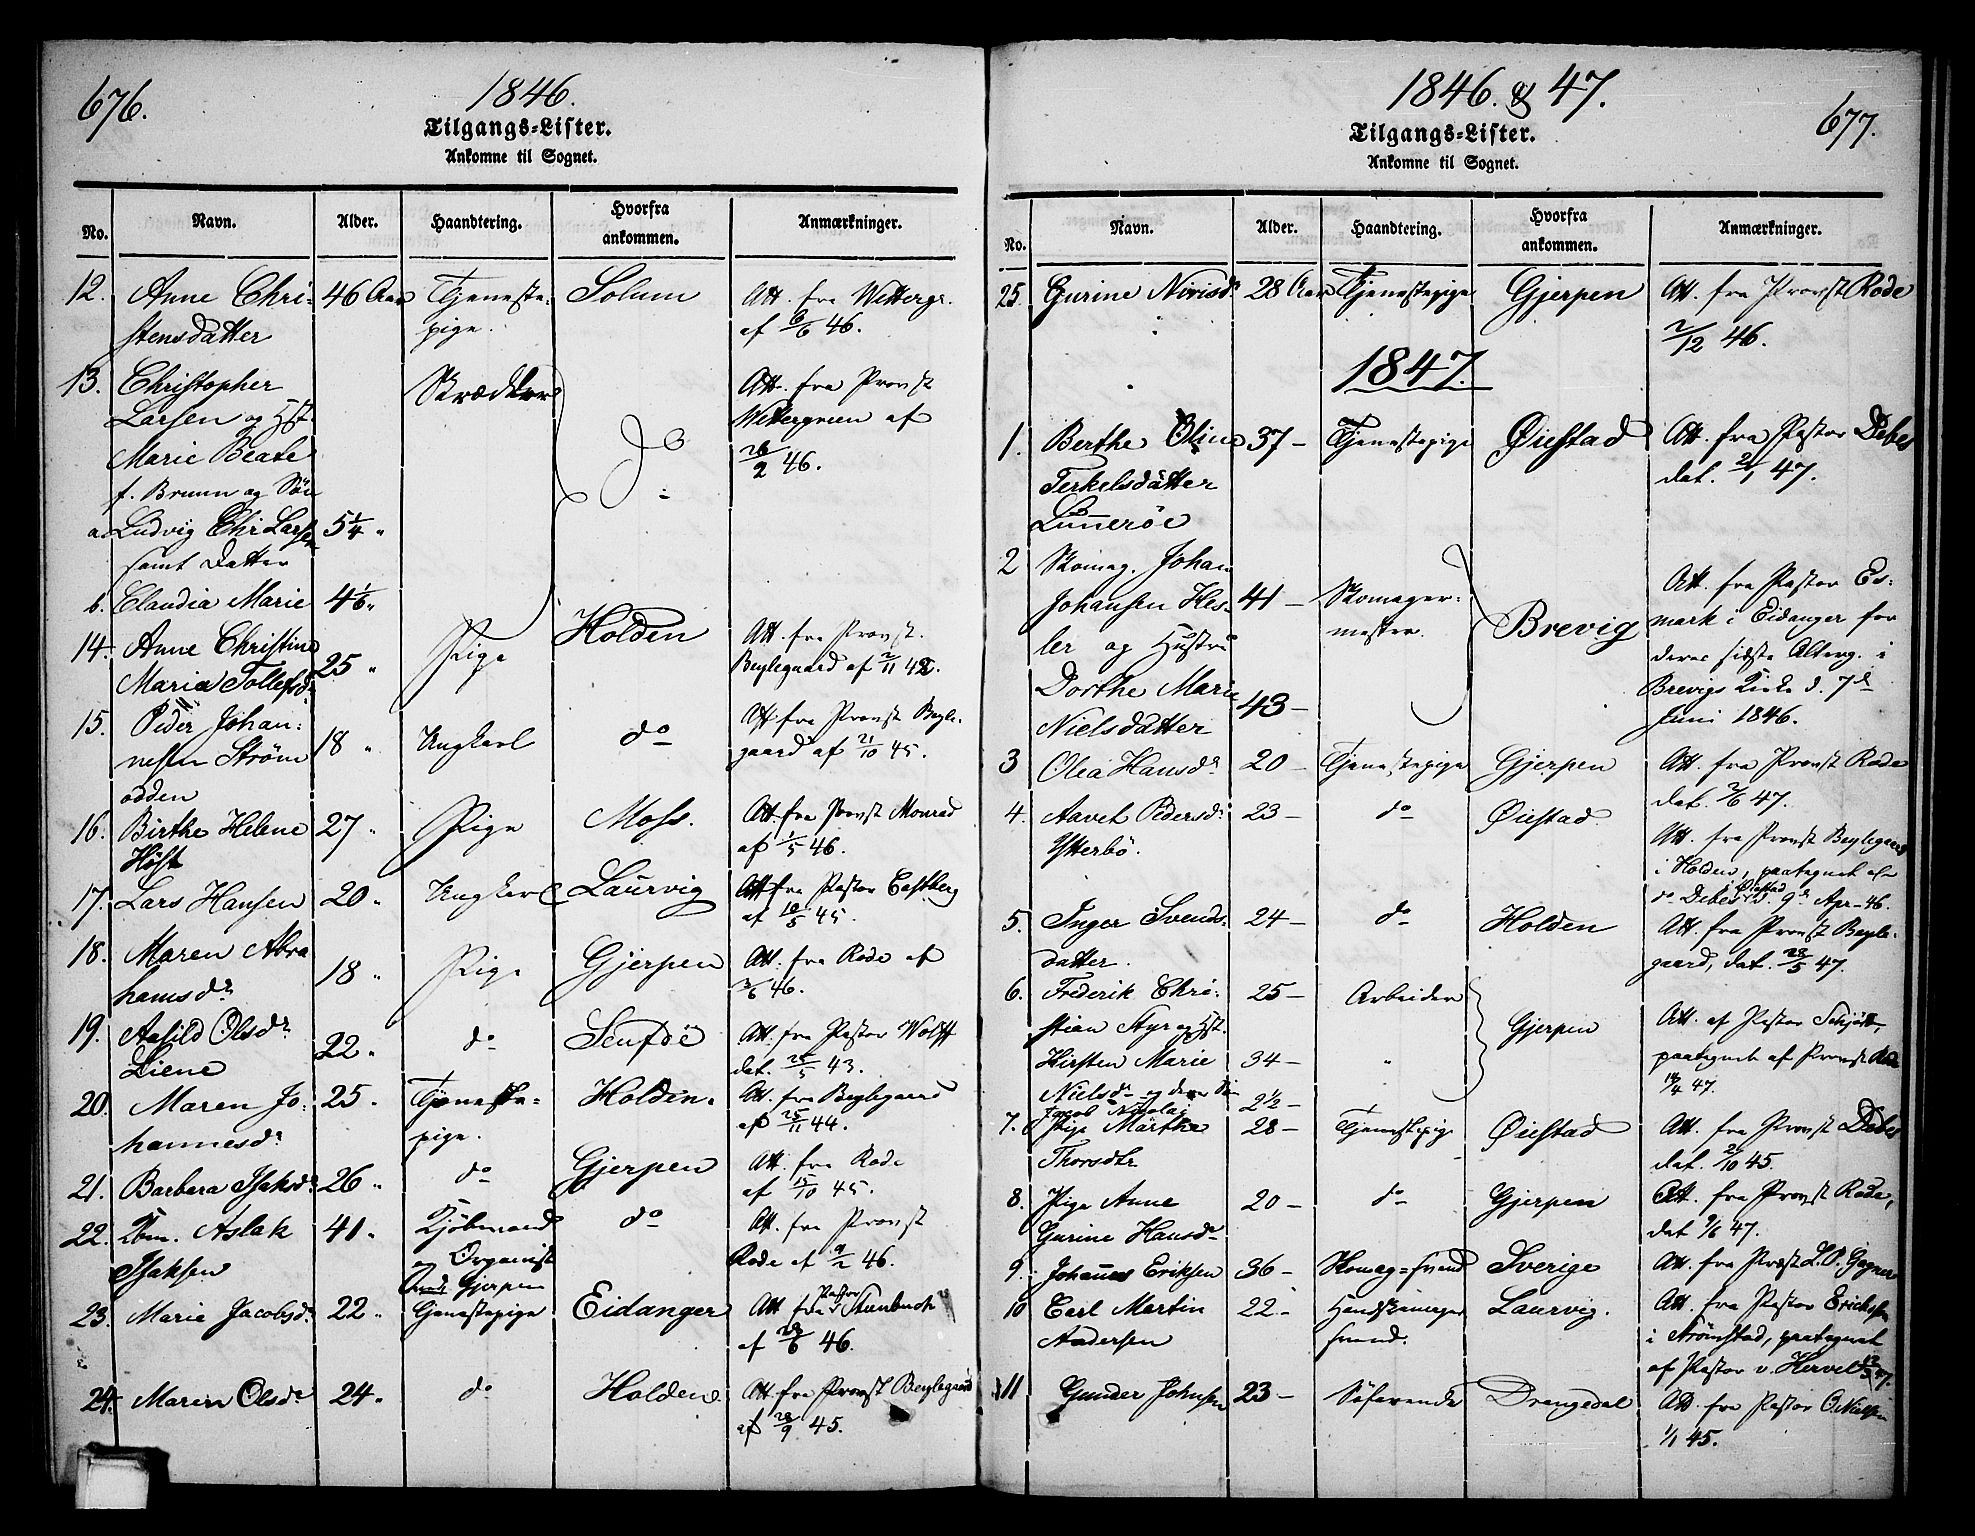 676.
1846.
Tilgangs-Lister.
Ankomne til Sognet.
No. Navn. Alder. Haandtering. Hvorfra ankommen. Anmærkninger.
12. Anne Chri- 46 Aar Tjeneste- Solum Att. fra Wettergr.
stensdatter pige. af 6/6 46.
13. Christopher Skrædder do Att. fra Provst
Larsen og Hst. Wettergreen af
Marie Beate 26/2 46.
f. Bruun og Søn
a. Ludvig Chr. Larsen 5 1/4 "
samt Datter
b. Claudia Marie 4 1/6 "
14. Anne Christine 25 " Pige Holden Att. fra Provst
Maria Tollefsdr Beylegaard af 2/11 42.
15. Peder Johan- 18 " Ungkarl do Att. fra Provst Beyle-
nesen Strøm- gaard af 21/10 45.
odden
16. Birthe Helene 27 " Pige Moss. Att. fra Provst Monrad
Høst af 1/5 46.
17. Lars Hansen 20 " Ungkarl Laurvig Att. fra Pastor Eastberg
af 10/5 45.
18. Maren Abra 18 " Pige Gjerpen Att. fra Rode af
hamsdr 3/6 46.
19. Aasild Olsdr 22 " do Att. fra Pastor Wolff
Liene dat. 25/5 43.
20. Maren Jo- 25 " Tjeneste- Holden. Att. fra Beylegaard
hannesdr pige. af 25/11 44.
21. Barbara Isaksdr 26 " do Gjerpen Att. fra Rode
af 15/10 45.
22. Kbm. Aslak 41 " Kjøbmand do Att. fra Provst
Isaksen og Organist Rode af 9/2 46.
Gjerpen
23. Marie Jacobsdr 22 " Tjenestepige Eidanger Att. fra Pastor Steenbuch
af 28/6 46.
24. Maren Olsdr 24 " do Holden. Att. fra Provst Beylegaard
af 28/9 45.
1846. & 47.
677.
Tilgangs-Lister.
Ankomne til Sognet.
No. Navn. Alder. Haandtering. Hvorfra ankommen. Anmærkninger.
25. Gurine Nirisdr 28 Aar Tjenestepige Gjerpen Att. fra Provst Rode
2/12 46.
1847.
1. Berthe Oline 37 - Tjenestepige Øiestad Att. fra Pastor Debes
Terkelsdatter dat. 21/1 47.
Lunnerøe
2 Skomag. Johan 41 - Skomager- Brevig Att. fra Pastor Es-
Johansen Hes- mester. mark i Eidanger for
ler og Hustru deres sidste Alterg. i
Dorthe Marie 43 - Brevigs Kirke d. 7de
Nielsdatter Juni 1846.
3 Olea Hansdr 20 - Tjenestepige Gjerpen Att. fra Provst Rode
dat. 2/6 47.
4. Aavet Pedersdr 23 - do Øiestad. Att. fra Provst Beylegaard
Ytterbö. i Holden, paategnet af
do Debes i Øiestad d. 9de Apr. 46.
5. Inger Svends- 24 - do Holden Att. fra Provst Beyle-
datter. gaard, dat. 28/5 47.
6. Frederik Chri- 25 - Arbeider Gjerpen Att. af Pastor Schjøtt,
stian Styr og Hst. paategnet af Provst Rode
Kirsten Marie 34 - " 14/4 47.
Nielsdr og deres Søn 2 1/2 -
Jacob Nicolai
7. Pige Marthe 28 - Tjenestepige Øiestad Att. fra Provst Debes
Thorsdtr dat. 21/10 45.
8. Pige Anne 20 - do Gjerpen Att. fra Provst Rode,
Gurine Hansdr dat 9/6 47.
9. Johannes Eriksen 36 - Skomag-svend Sverige Att. fra Præst L. P.
10 Carl Martin 22 - Handskemager Laurvig. Att. fra Pastor Erichsen
Andersen svend. i Strømstad, paategnet
af Pastor v. Hervel
11 Gunder Johnsen 23 - Søfarende Drangedal Att. fra Pastor O. Nielsen
1/1 45.